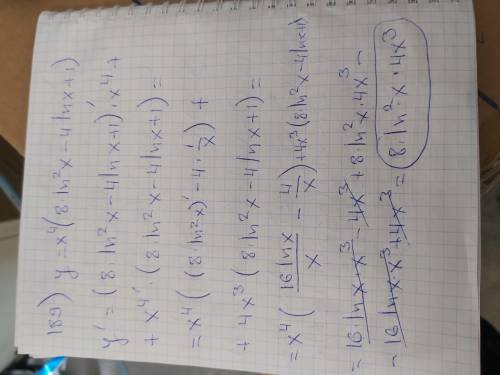 189) y = x⁴(8·ln²x - 4 lnx + 1)
y' = (8·ln²x - 4 lnx + 1)'·x⁴ +
+ x⁴'·(8·ln²x - 4 lnx + 1) =
= x⁴((8·ln²x)' - 4·1/x) +
+ 4x³(8·ln²x - 4 lnx + 1) =
= x⁴(16 lnx/x - 4/x) + 4x³(8·ln²x - 4 lnx + 1)
= 16·lnx·x³ - 4x³ + 8·ln²x·4x³ -
- 16 lnx·x³ + 4x³ = 8·ln²x·4x³